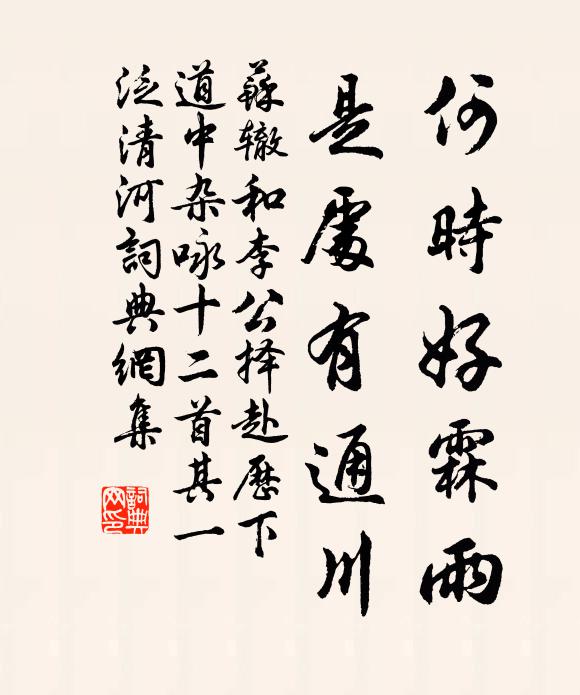 何時好霖雨
是處有通川
蘇辙和李公择赴歷下
道中杂咏十二首其一
泛清河詞典網集
詞典
网印